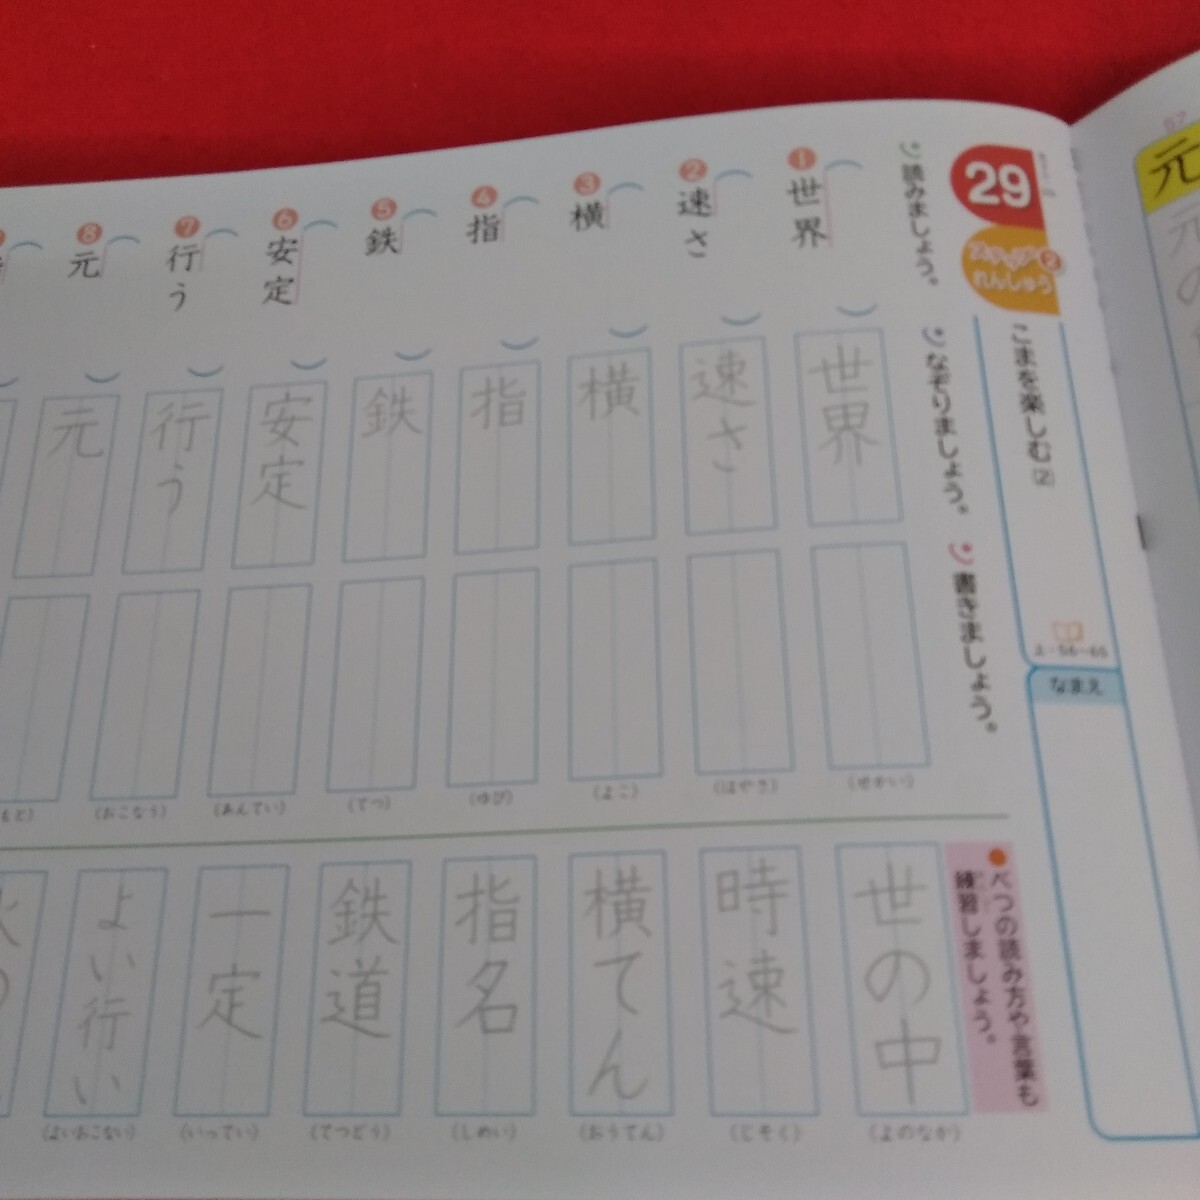 29
ステップ2
れんしゅう
こまを楽しむ②
上・56〜65
なまえ
読みましょう。
なぞりましょう。
書きましょう。
1 世界
2 速さ
3 横
4 指
5 鉄
6 安定
7 行う
8 元
世界
速さ
横
指
鉄
安定
行う
元
(せかい)
(はやさ)
(よこ)
(ゆび)
(てつ)
(あんてい)
(おこなう)
もと)
●べつの読み方や言葉も
練習しましょう。
世の中
(よのなか)
時速
(じそく)
横てん
(おうてん)
指名
(しめい)
鉄道
(てつどう)
一定
(いってい)
よい行い
(よいおこない)
57
元